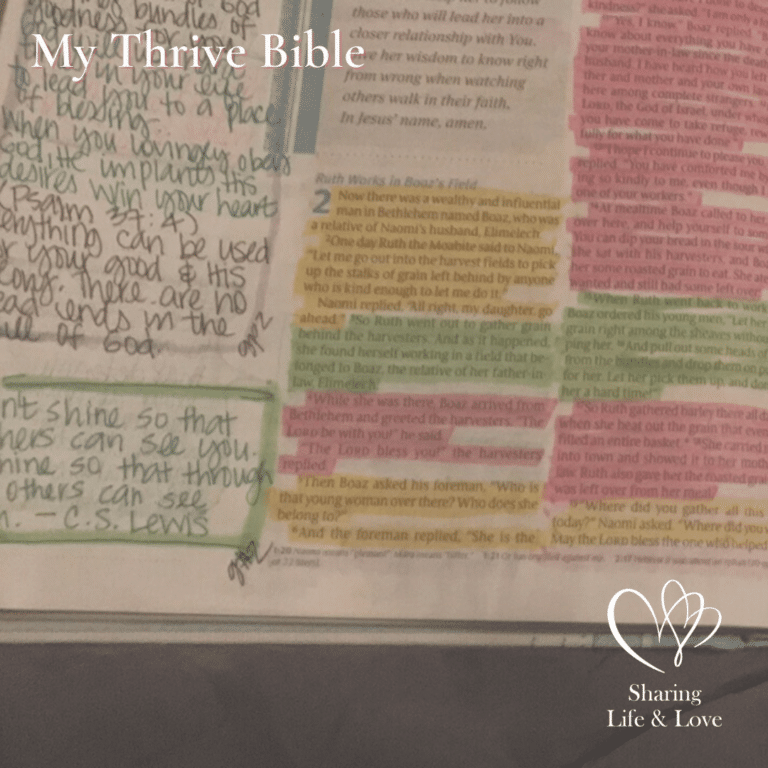 My Thrive Bible
God
bundles of
to lead you to a place
of blessing.
When you lovingly obey
God, He implants His
desires w/in your heart
(Psalm 37:4)
everything can be used
your good & His
There are no
ends in the
of God.
n't shine so that
hers can see you.
hine so that through
others can see
— C.S. Lewis
those who will lead her into a
closer relationship with You.
her wisdom to know right
from wrong when watching
others walk in their faith.
In Jesus' name, amen.
Ruth Works in Boaz's Field
2 Now there was a wealthy and influential
man in Bethlehem named Boaz, who was
a relative of Naomi's husband, Elimelech.
2One day Ruth the Moabite said to Naomi,
"Let me go out into the harvest fields to pick
up the stalks of grain left behind by anyone
who is kind enough to let me do it."
Naomi replied, "All right, my daughter, go
ahead." 3So Ruth went out to gather grain
behind the harvesters. And as it happened,
she found herself working in a field that be-
longed to Boaz, the relative of her father-in-
law, Elimelech.
4While she was there, Boaz arrived from
Bethlehem and greeted the harvesters. "The
LORD be with you!" he said.
"The LORD bless you!" the harvesters
replied.
5Then Boaz asked his foreman, "Who is
that young woman over there? Who does she
belong to?"
6And the foreman replied, "She is the
kindness?" she asked. "I am only a fo
"Yes, I know," Boaz replied.
know about everything you have
your mother-in-law since the dea
husband. I have heard how you left
ther and mother and your own la
here among complete strangers.
LORD, the God of Israel, under who
you have come to take refuge, rew
fully for what you have done."
"I hope I continue to please you,
replied. "You have comforted me
ing so kindly to me, even though I
one of your workers."
14At mealtime Boaz called to her,
over here, and help yourself to som
You can dip your bread in the sour w
she sat with his harvesters, and Boa
her some roasted grain to eat. She ate
wanted and still had some left over.
15When Ruth went back to work
Boaz ordered his young men, "Let her
grain right among the sheaves withou
ping her. 16And pull out some heads of
from the bundles and drop them on p
for her. Let her pick them up, and don
her a hard time!"
17So Ruth gathered barley there all da
when she beat out the grain that even
filled an entire basket. 18She carried
into town and showed it to her moth
law. Ruth also gave her the roasted grai
was left over from her meal.
19"Where did you gather all this
today?" Naomi asked. "Where did you w
May the LORD bless the one who helped
Sharing
Life & Love